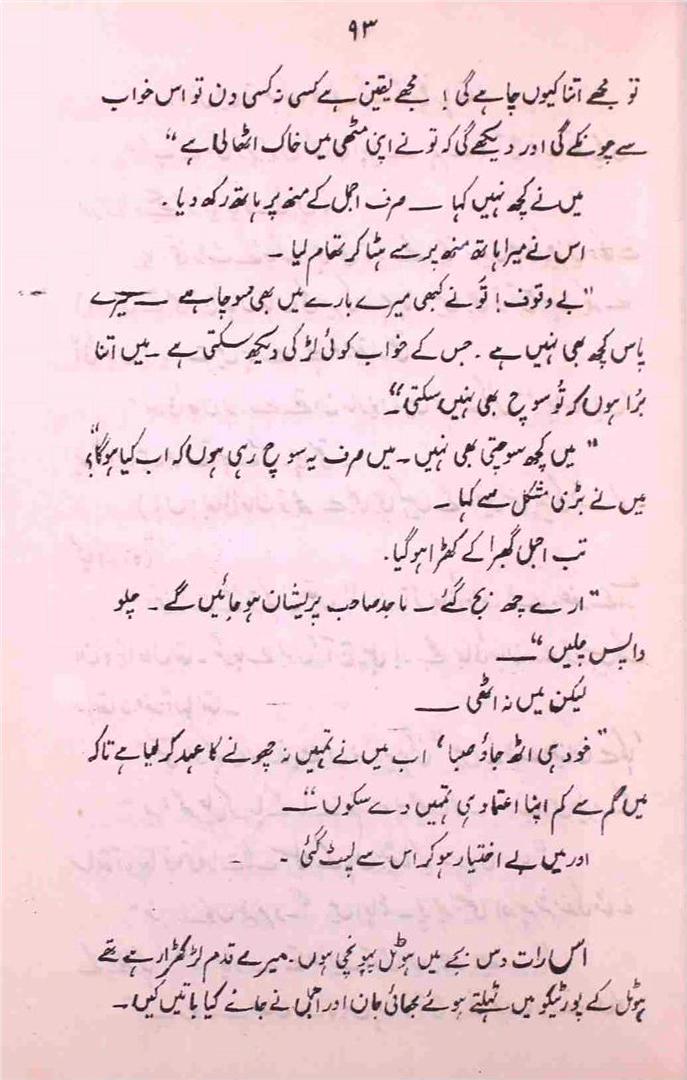 ۹۳
تو مجھے اتنا کیوں چاہے گی! مجھے یقین ہے کسی نہ کسی دن تو اس خواب
سے چونکے گی اور دیکھے گی کہ تو نے اپنی مٹھی میں خاک اٹھالی ہے "
میں نے کچھ نہیں کہا — صرف اجمل کے منھ پر ہاتھ رکھ دیا ۔
اس نے میرا ہاتھ منھ پر سے ہٹا کر تھام لیا ۔
"بے وقوف! تُو نے کبھی میرے بارے میں بھی سوچا ہے — میرے
پاس کچھ بھی نہیں ہے ۔ جس کے خواب کوئی لڑکی دیکھ سکتی ہے ۔ میں اتنا
بُرا ہوں کہ تُو سوچ بھی نہیں سکتی "۔
" میں کچھ سوچتی بھی نہیں ۔ میں صرف یہ سوچ رہی ہوں کہ اب کیا ہوگا"؟
میں نے بڑی مشکل سے کہا ۔
تب اجمل گھبرا کے کھڑا ہو گیا ۔
"ارے چھ بج گئے ۔ ماجد صاحب پریشان ہو جائیں گے ۔ چلو
واپس چلیں " —
لیکن میں نہ اٹھی —
"خود ہی اٹھ جاؤ صبا، اب میں نے تمہیں نہ چھونے کا عہد کر لیا ہے تاکہ
میں کم سے کم اپنا اعتماد ہی تمہیں دے سکوں " —
اور میں بے اختیار ہو کر اس سے لپٹ گئی ۔ ۔
اس رات دس بجے میں ہوٹل پہونچی ہوں ۔ میرے قدم لڑکھڑا رہے تھے
ہوٹل کے پورٹیکو میں ٹہلتے ہوئے بھائی جان اور اجمل نے جانے کیا باتیں کیں ۔